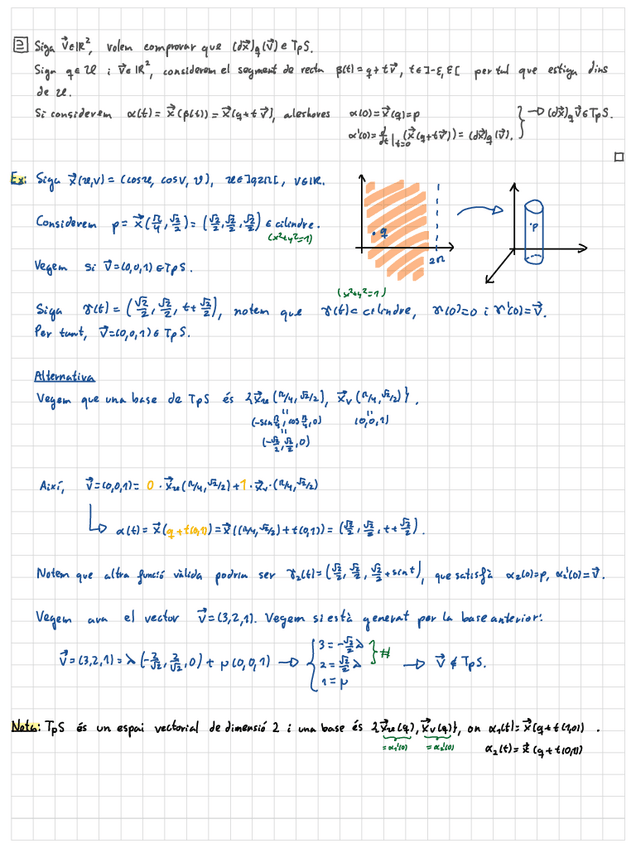 2 Siga v⃗∈ℝ², volem comprovar que (dx⃗)q(v⃗) ∈ TpS.
Sign q∈U i v⃗∈ℝ², considerem el segment de recta β(t)=q+tv⃗, t∈]-ε,ε[ per tal que estiga dins
de U.
Si considerem α(t)=x⃗(β(t))=x⃗(q+tv⃗), aleshores α(0)=x⃗(q)=p
α'(0)=d/dt|t=0 (x⃗(q+tv⃗))=(dx⃗)q(v⃗). } → (dx⃗)q v⃗∈TpS.
□
Ex: Siga x⃗(u,v)=(cosu, cosv, v), u∈]0,2π[, v∈ℝ.
Considerem p=x⃗(π/4, √2/2)=(√2/2, √2/2, √2/2) ∈ cilindre.
(x²+y²=1)
q
2π
p
Vegem si v⃗=(0,0,1)∈TpS.
(x²+y²=1)
Siga γ(t)=(√2/2, √2/2, t+√2/2), notem que γ(t)⊂cilindre, γ(0)=0 i γ'(0)=v⃗.
Per tant, v⃗=(0,0,1)∈TpS.
Alternativa
Vegem que una base de TpS és {x⃗u(π/4,√2/2), x⃗v(π/4,√2/2)}.
(-sin π/4, cos π/4, 0) (0,0,1)
(-√2/2, √2/2, 0)
Així, v⃗=(0,0,1)= 0·x⃗u(π/4,√2/2)+1·x⃗v·(π/4,√2/2)
↳ α(t)=x⃗(q+t(0,1))=x⃗((π/4,√2/2)+t(0,1))=(√2/2, √2/2, t+√2/2).
Notem que altra funció vàlida podria ser γ₂(t)=(√2/2, √2/2, √2/2+sint), que satisfà α₂(0)=p, α₂'(0)=v⃗.
Vegem ara el vector v⃗=(3,2,1). Vegem si està generat per la base anterior:
v⃗=(3,2,1)=λ(-2/√2, 2/√2, 0)+μ(0,0,1) → { 3=-√2/2 λ
2=√2/2 λ } # → v⃗∉TpS.
1=μ
Nota: TpS és un espai vectorial de dimensió 2 i una base és {x⃗u(q), x⃗v(q)}, on α₁(t)=x⃗(q+t(1,0)) .
=α₁'(0) =α₂'(0) α₂(t)=x⃗(q+t(0,1))